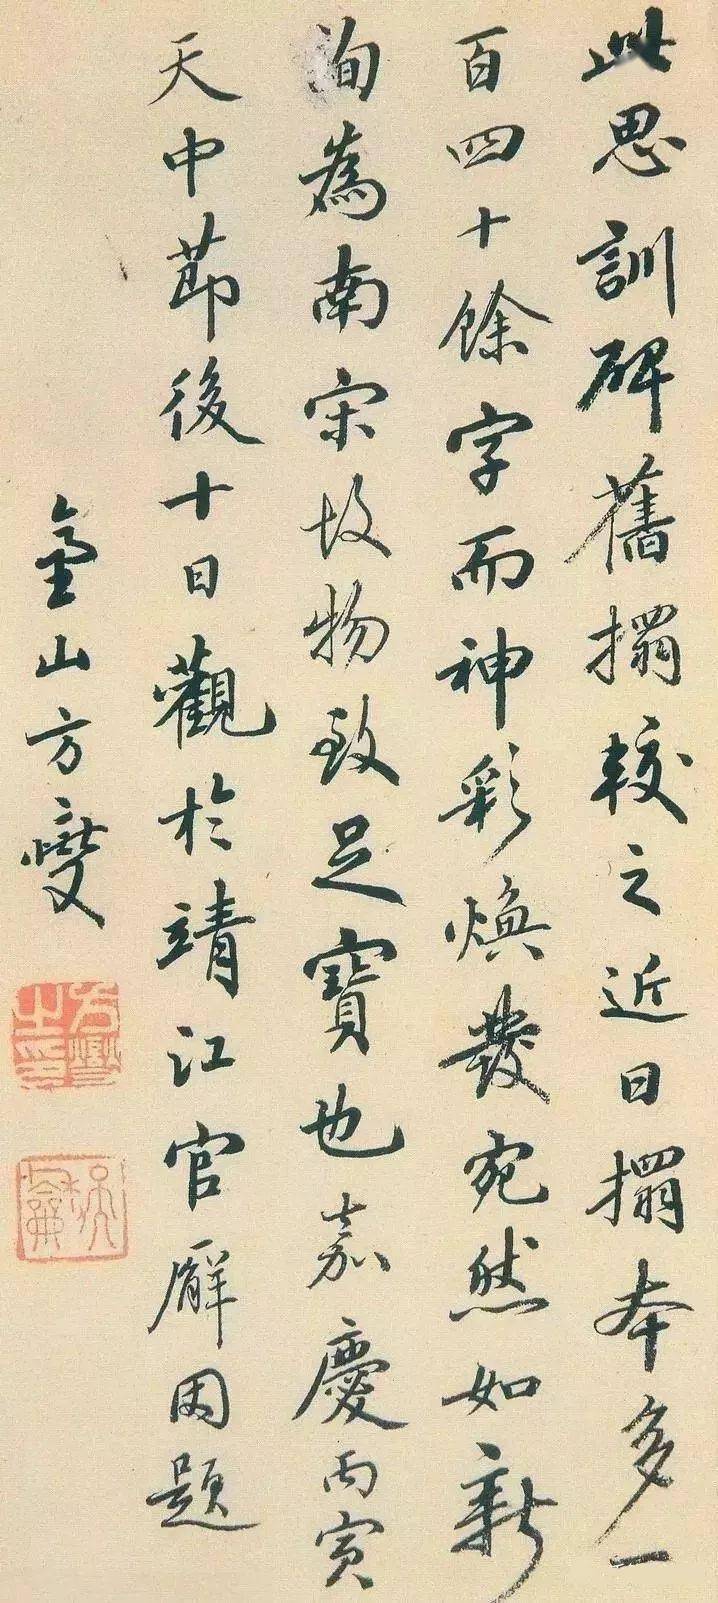 此思訓碑舊搨較之近日搨本多一
百四十餘字而神彩煥發宛然如新
洵為南宋故物致足寶也嘉慶丙寅
天中節後十日觀於靖江官廨因題
臺山方燮
方燮之印